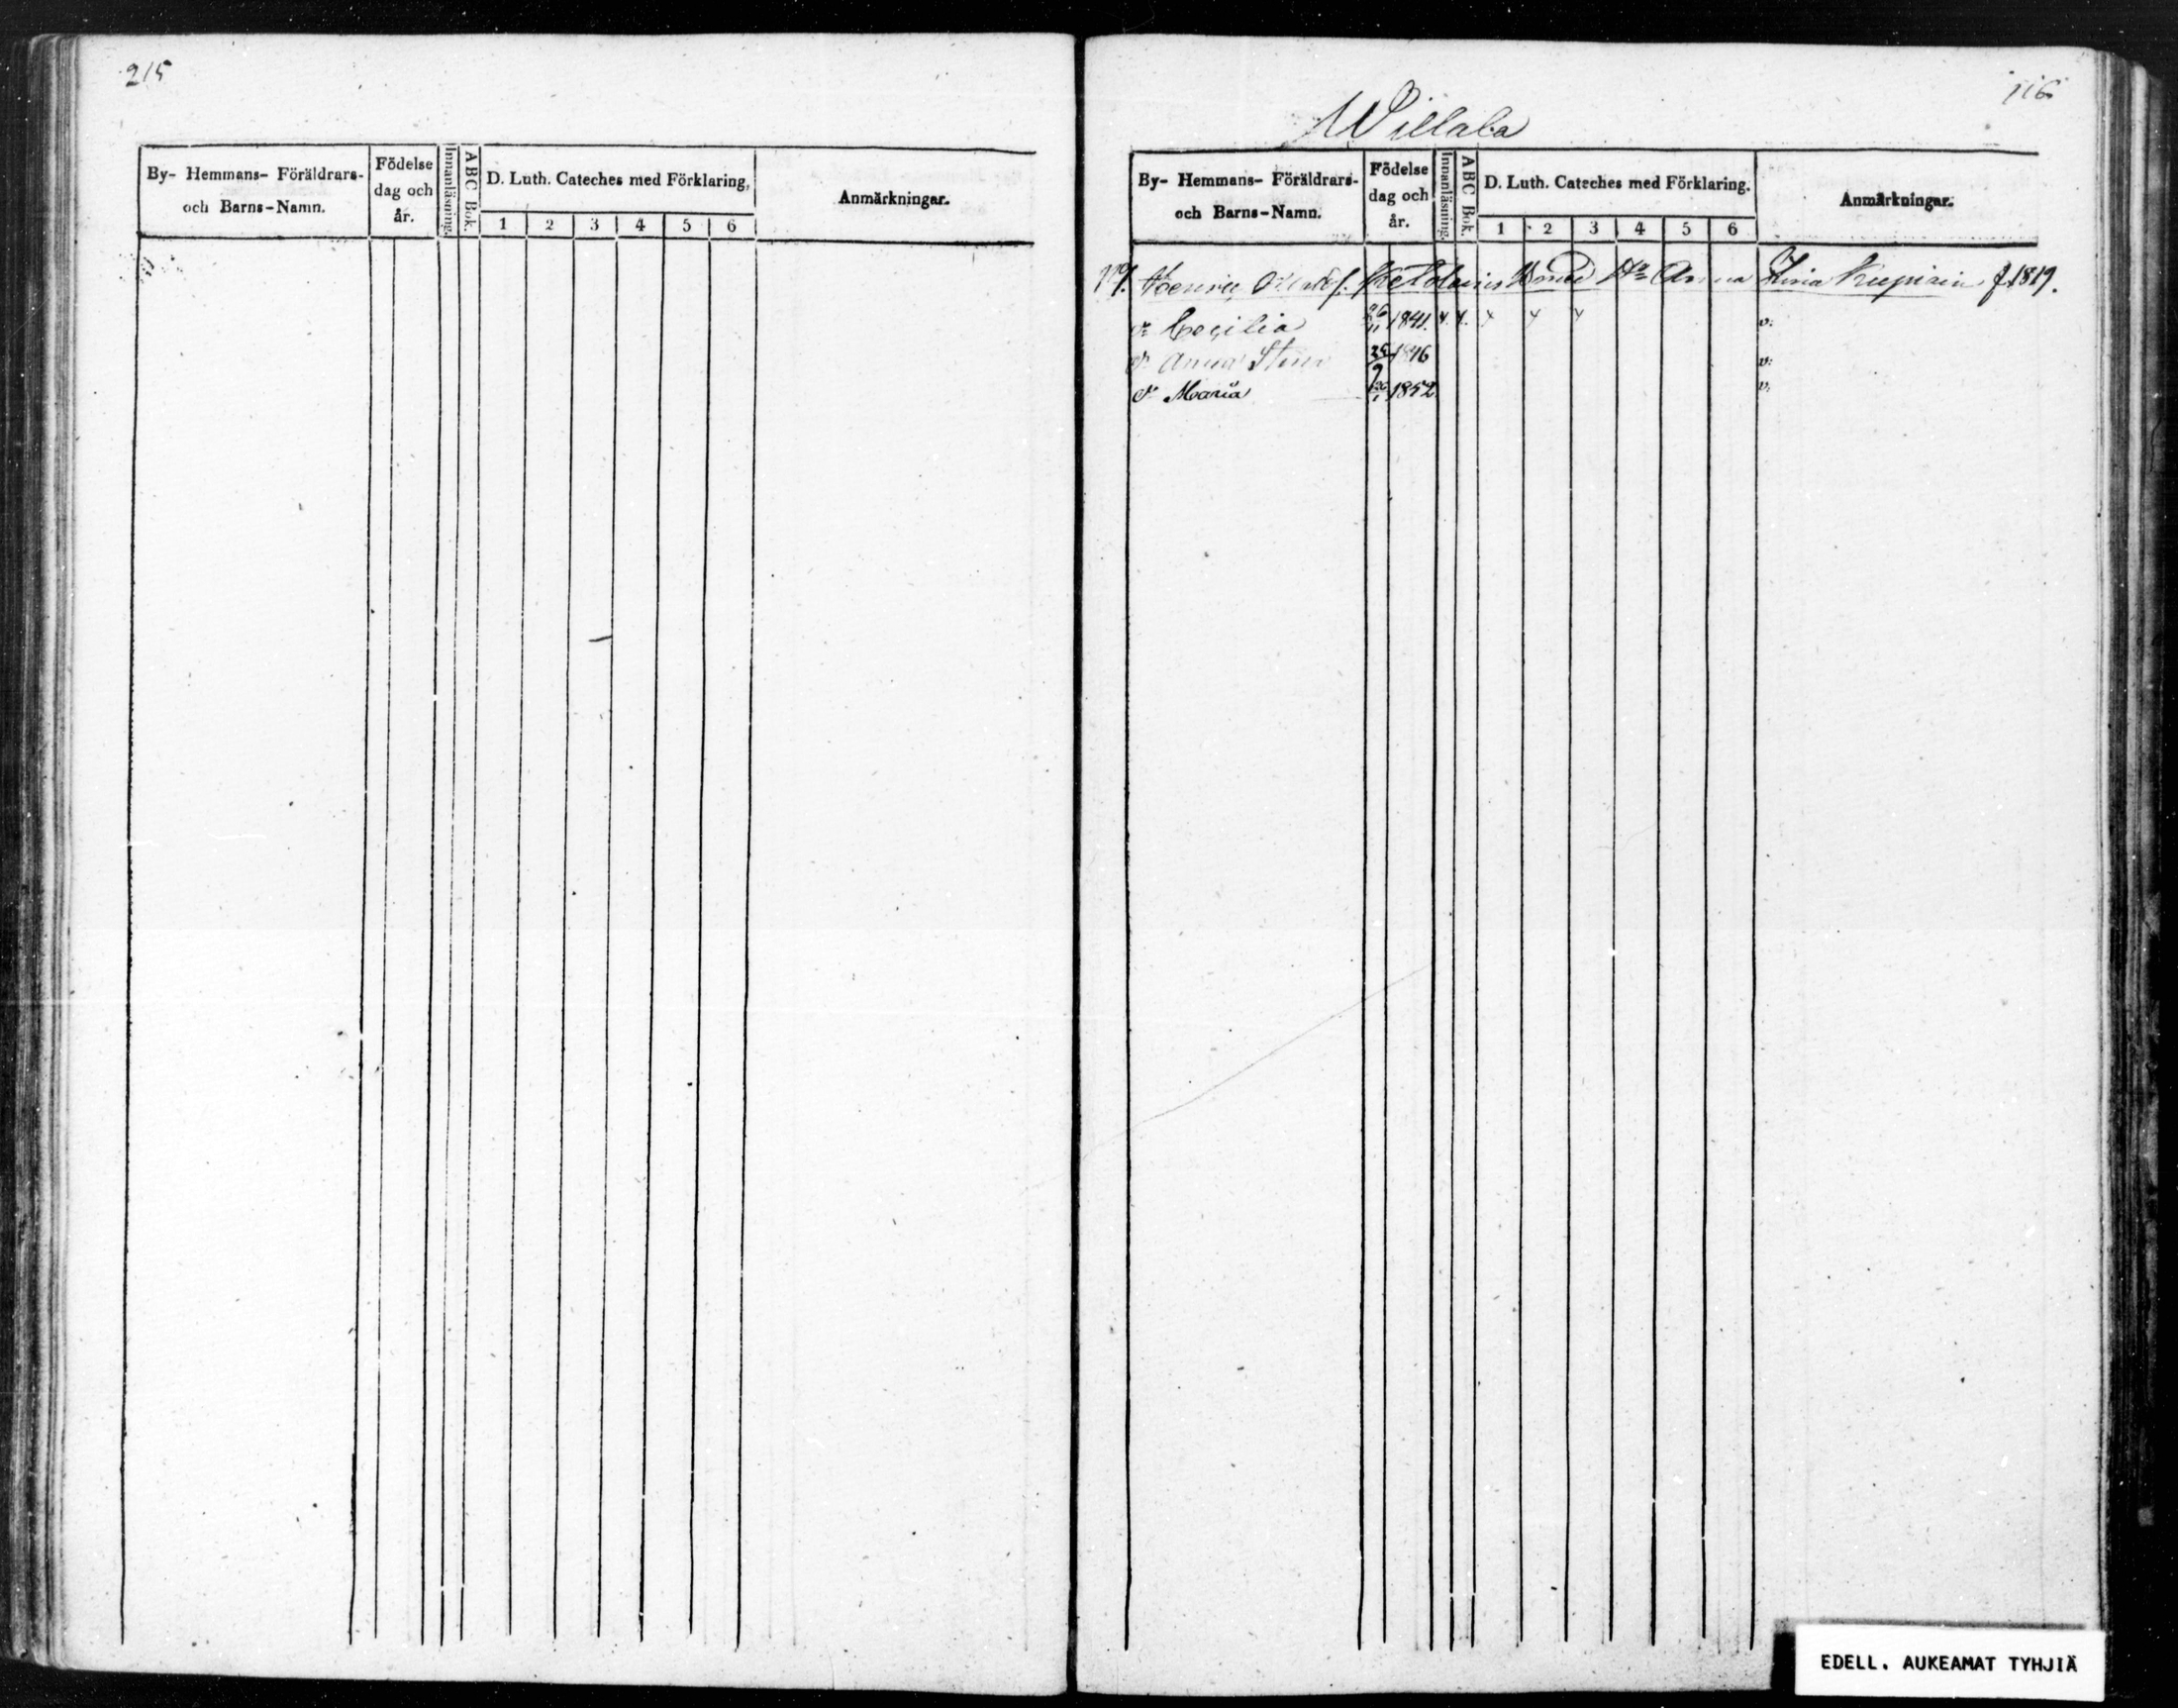 215
By- Hemmans- Föräldrars-
och Barns-Namn.
Födelse
dag och
år.
Innanläsning.
ABC Bok.
D. Luth. Cateches med Förklaring,
1 2 3 4 5 6
Anmärkningar.
116
Willala
By- Hemmans- Föräldrars-
och Barns-Namn.
Födelse
dag och
år.
Innanläsning.
ABC Bok.
D. Luth. Cateches med Förklaring.
1 2 3 4 5 6
Anmärkningar.
Henric Anna f. 1819.
Cecilia 1841. v:
Anna Stina 1846 v:
Maria 1852 v:
EDELL. AUKEAMAT TYHJIÄ